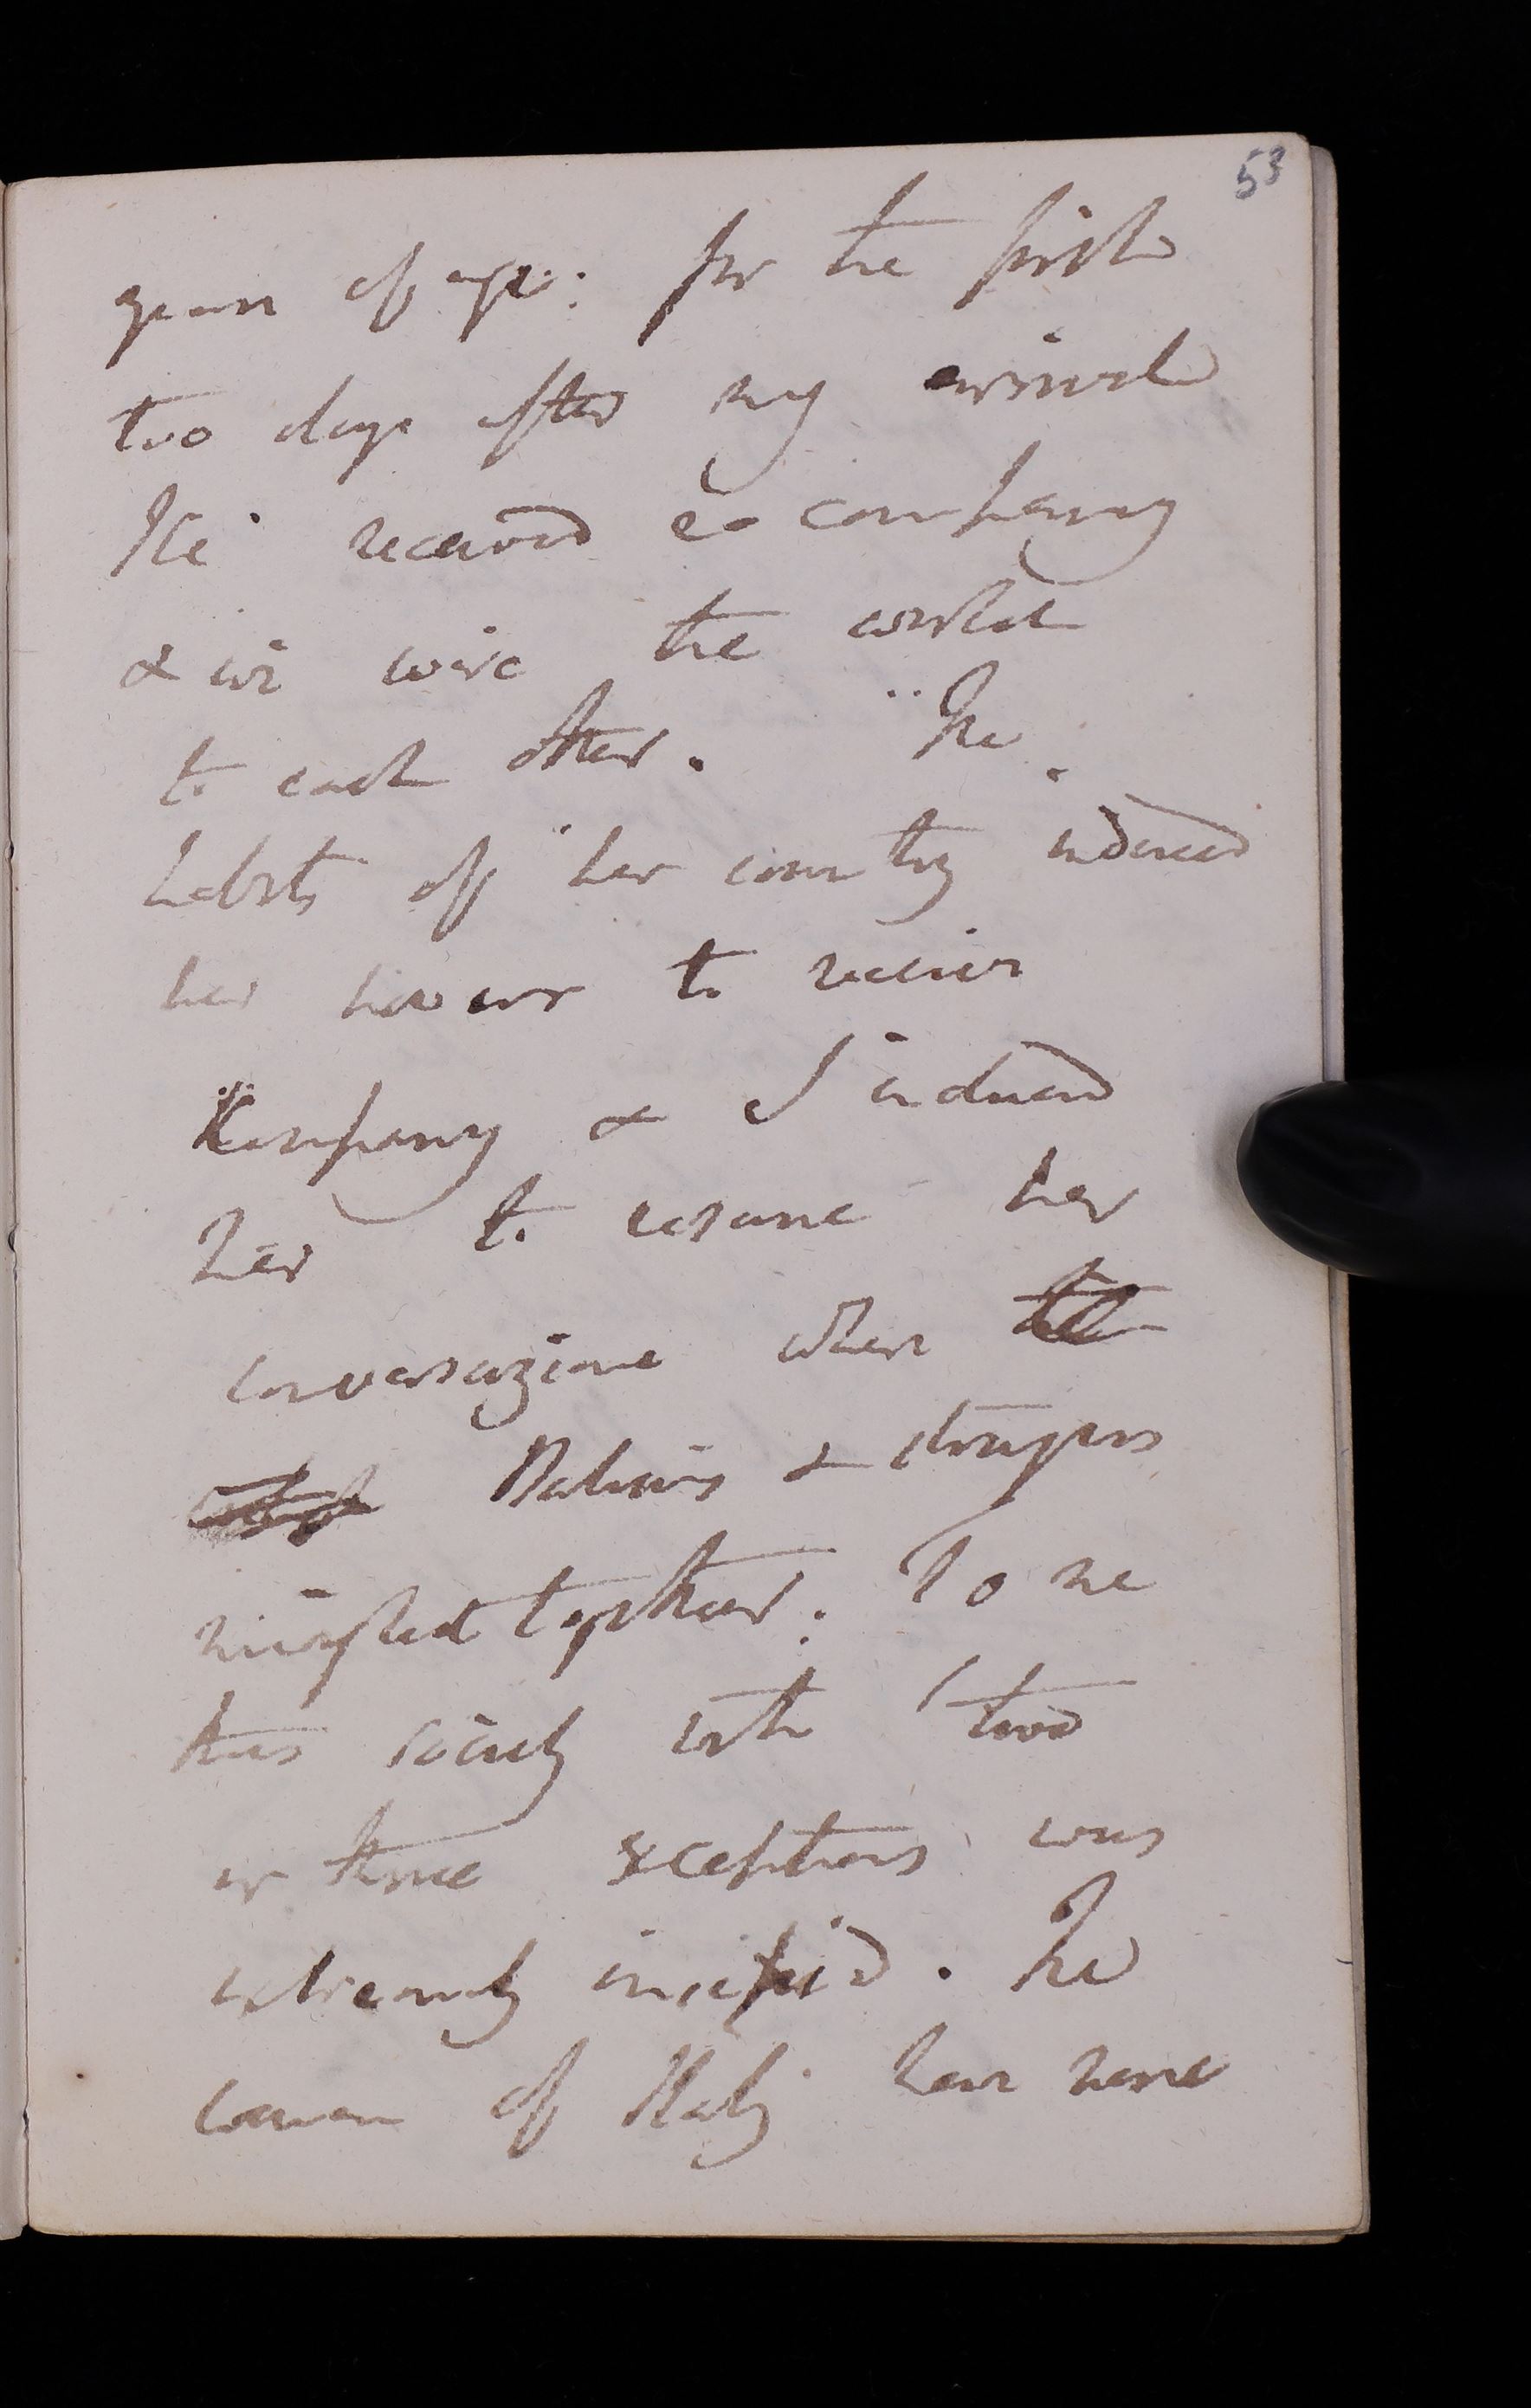 53
years of age: for the first
two days after my arrival
She received no company
& we were the world
to each other. The
habits of her country induced
her however to receive
Company & I induced
her to resume her
conversazione where the
Natives & strangers
mingled together. To me
this society with two
or three exceptions was
extremely insipid. The
women of Italy have none